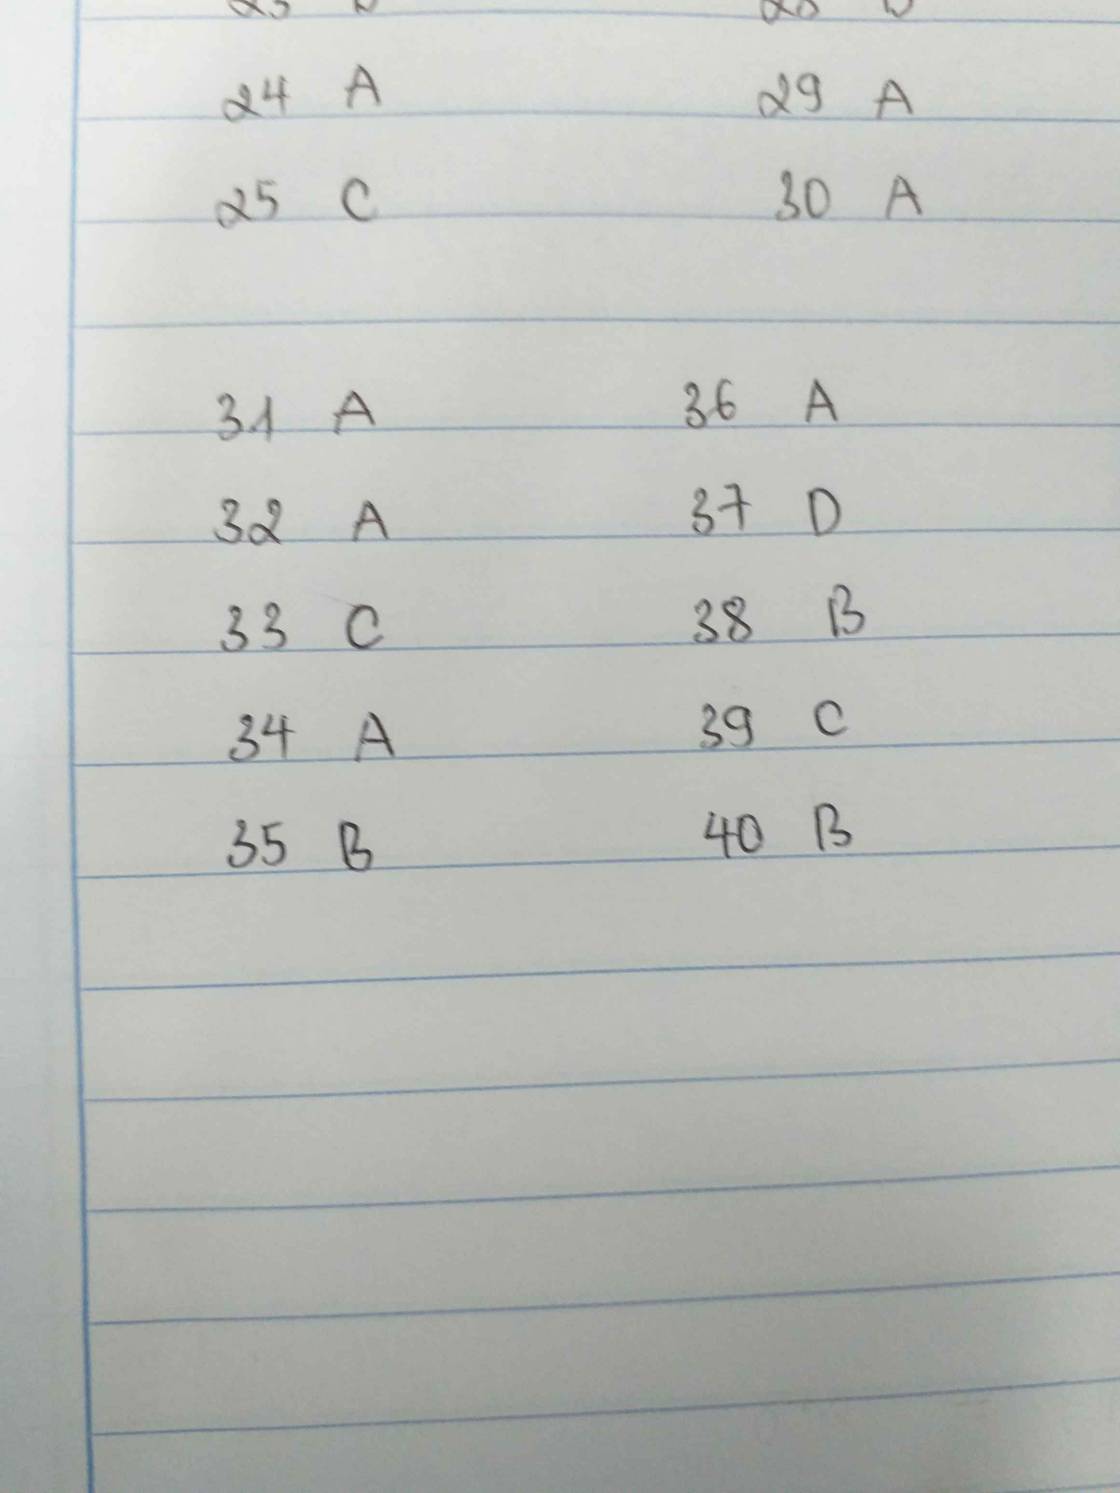 24 A 29 A
25 C 30 A
31 A 36 A
32 A 37 D
33 C 38 B
34 A 39 C
35 B 40 B